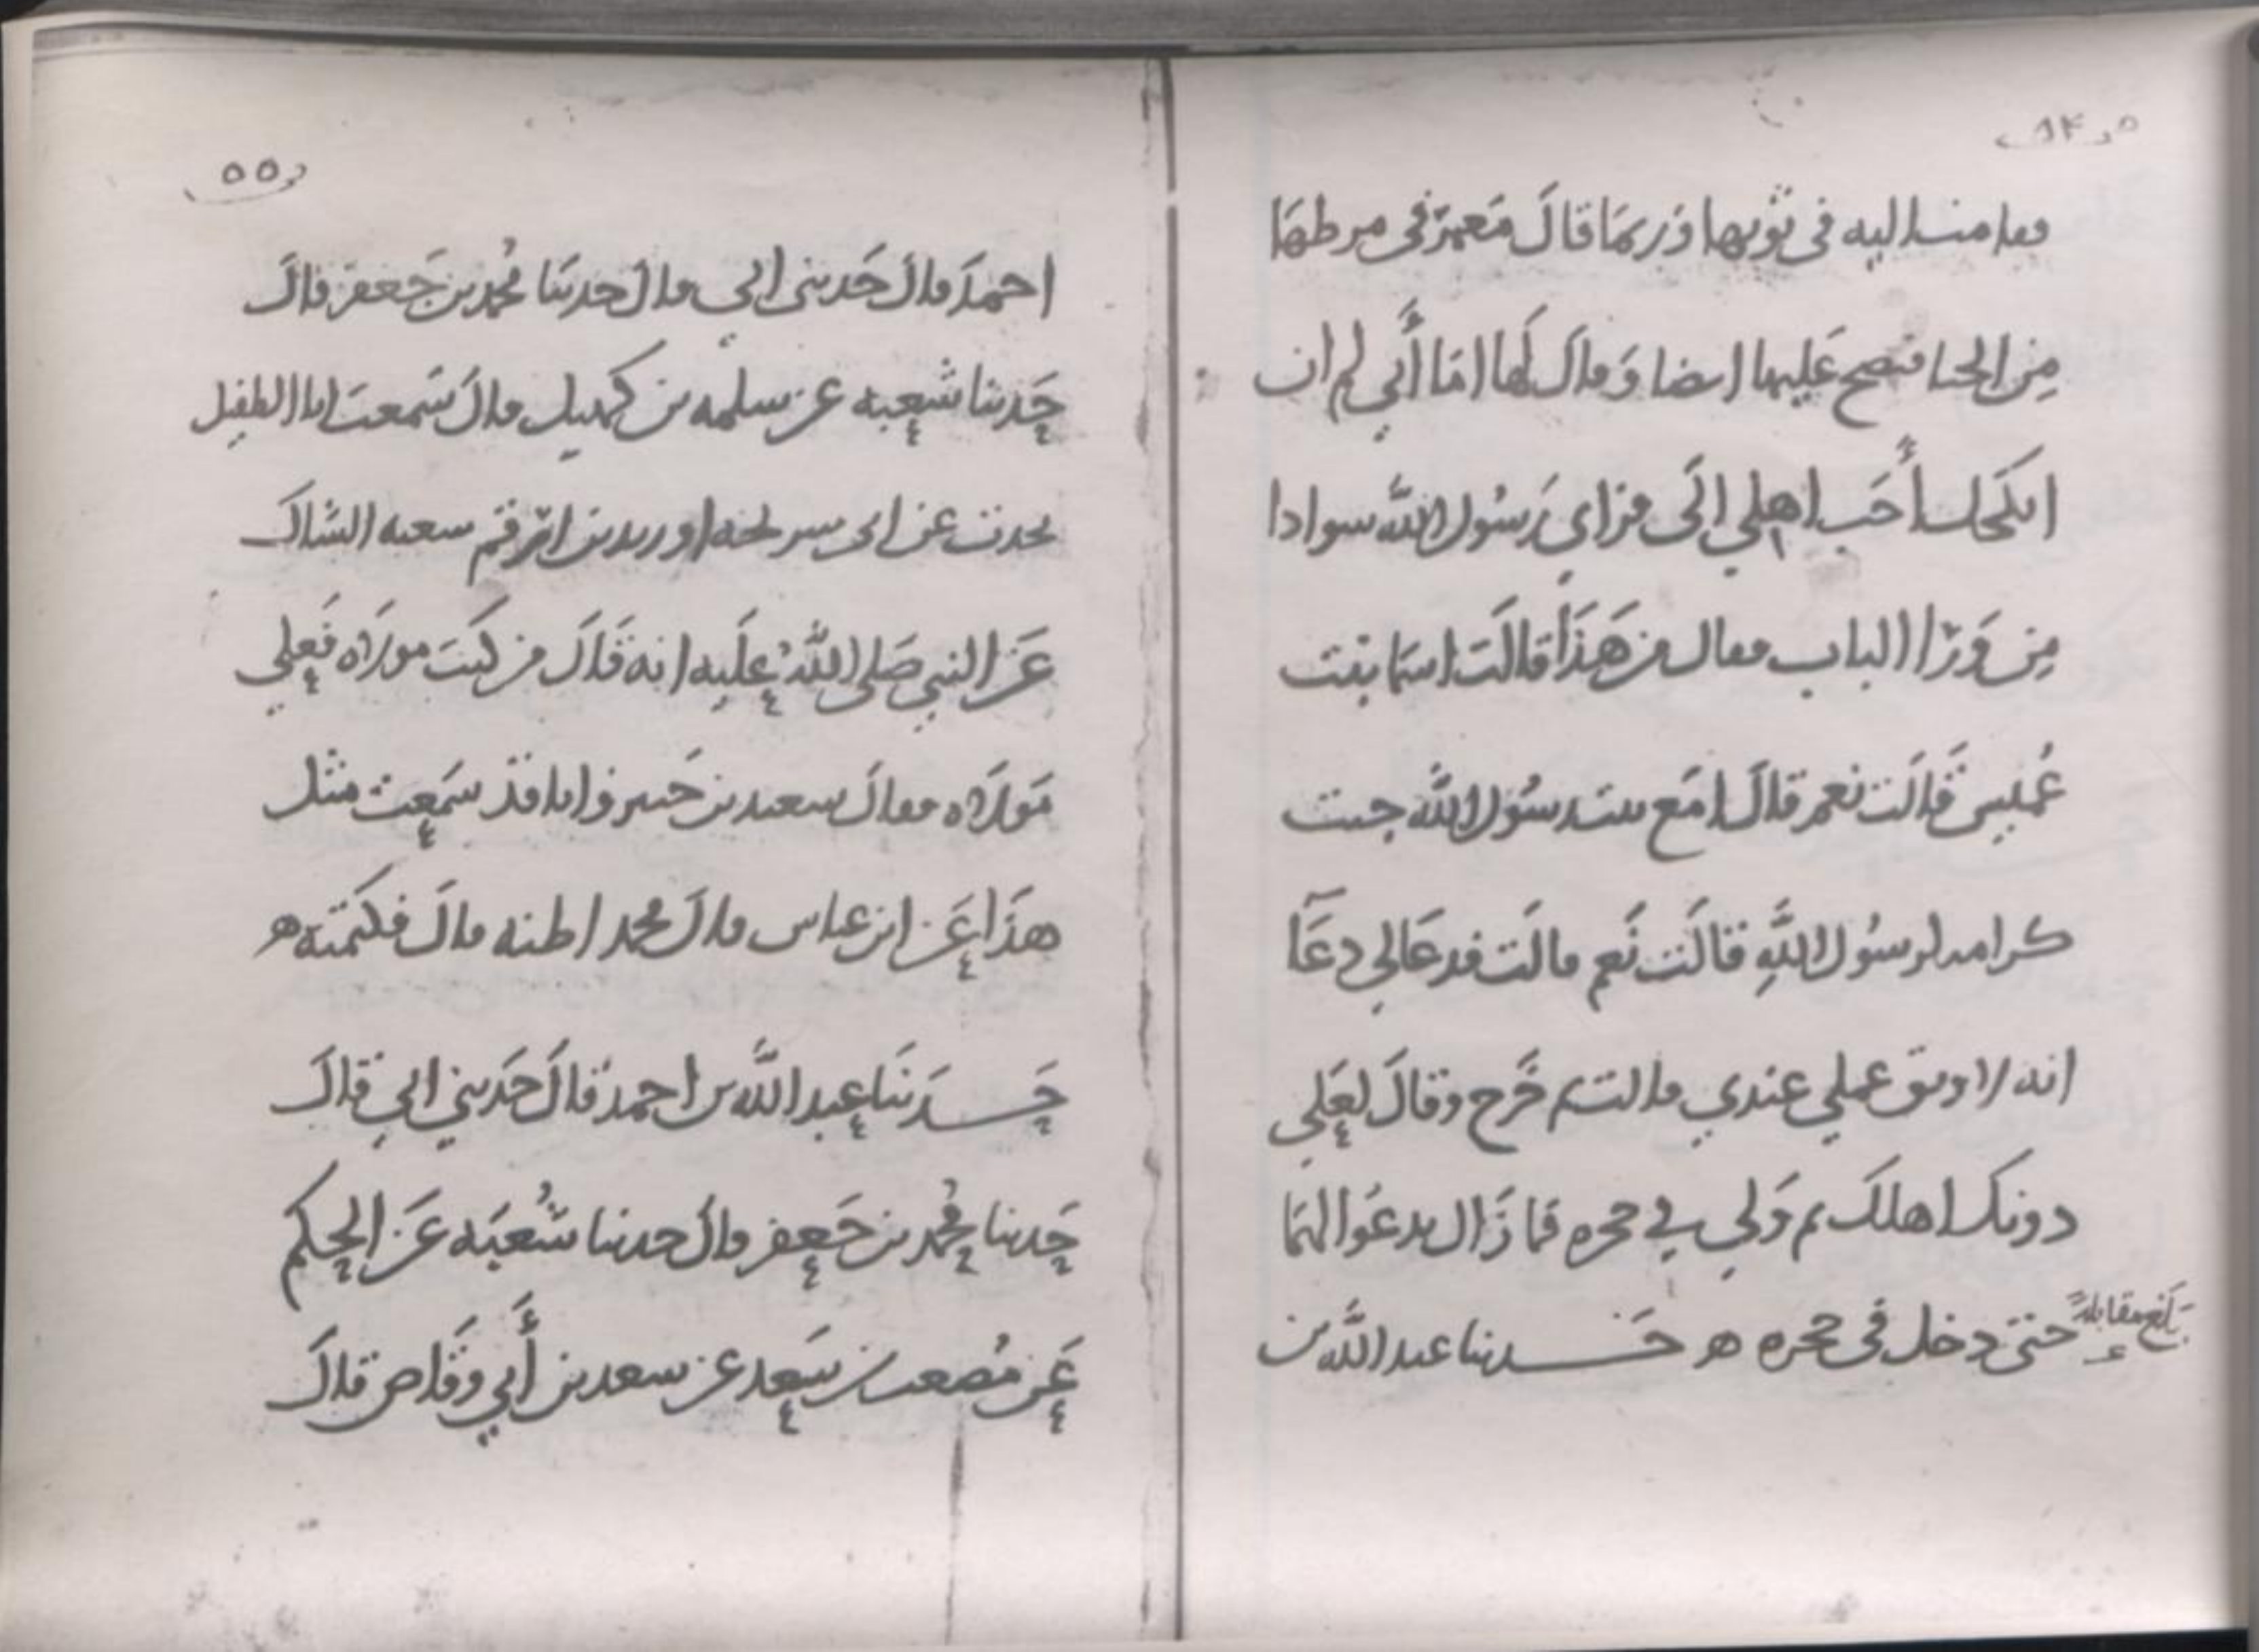 ٥٤
فقامت اليه في ثوبها وَربمَا قالَ مَعمرٌ في مرطهَا
مِن الحيا فنضح عَليها ايضا وَقالَ لهَا امَا أَني لم ان
انكحك أَحَب اهلي الَى فراى رَسُول اللَّه سوادا
مِن وَرَا الباب فقال من هَذَا قالَت اسمَا بنت
عُميس قَالَت نعم قالَ امَع بنت رسُول اللَّه جيت
كرامه لرسُول اللَّهِ قالَت نَعم قالَت فدعَا لي دعَآ
انه لاوثق عملي عندي قالت ثم خَرج وقالَ لعَلي
دونك اهلكَ ثم وَلى في حجره فما زَال يدعُوا لهمَا
حتى دخل في حجره ه حَــدثنا عبد اللَّه بن
بَلغ مقابلةً
٥٥
احمدَ قالَ حَدثني ابي قالَ حدثنَا مُحمد بن جَعفر قالَ
حَدثنا شعبه عن سلمه بن كهيل قالَ سَمعتَ ابا الطفيل
يحدث عن ابى سريحه او زيد بن ارقم شعبه الشاك
عَن النبي صَلى اللَّهُ عَليه انه قَالَ من كنتَ مولَاه فعَلي
مَولَاه فقالَ سعيد بن جَبير وَانا قد سَمعت مثل
هذَا عَن ابن عباس قالَ محمد اظنه قالَ فكتمته ه
حَــدثنَا عبد اللَّه بن احمد قالَ حَدثني ابي قالَ
حَدثنا مُحمد بن جَعفر قالَ حدثنا شُعبَه عَن الحكم
عَن مُصعب بن سَعد عن سعد بن أَبي وقَاص قالَ